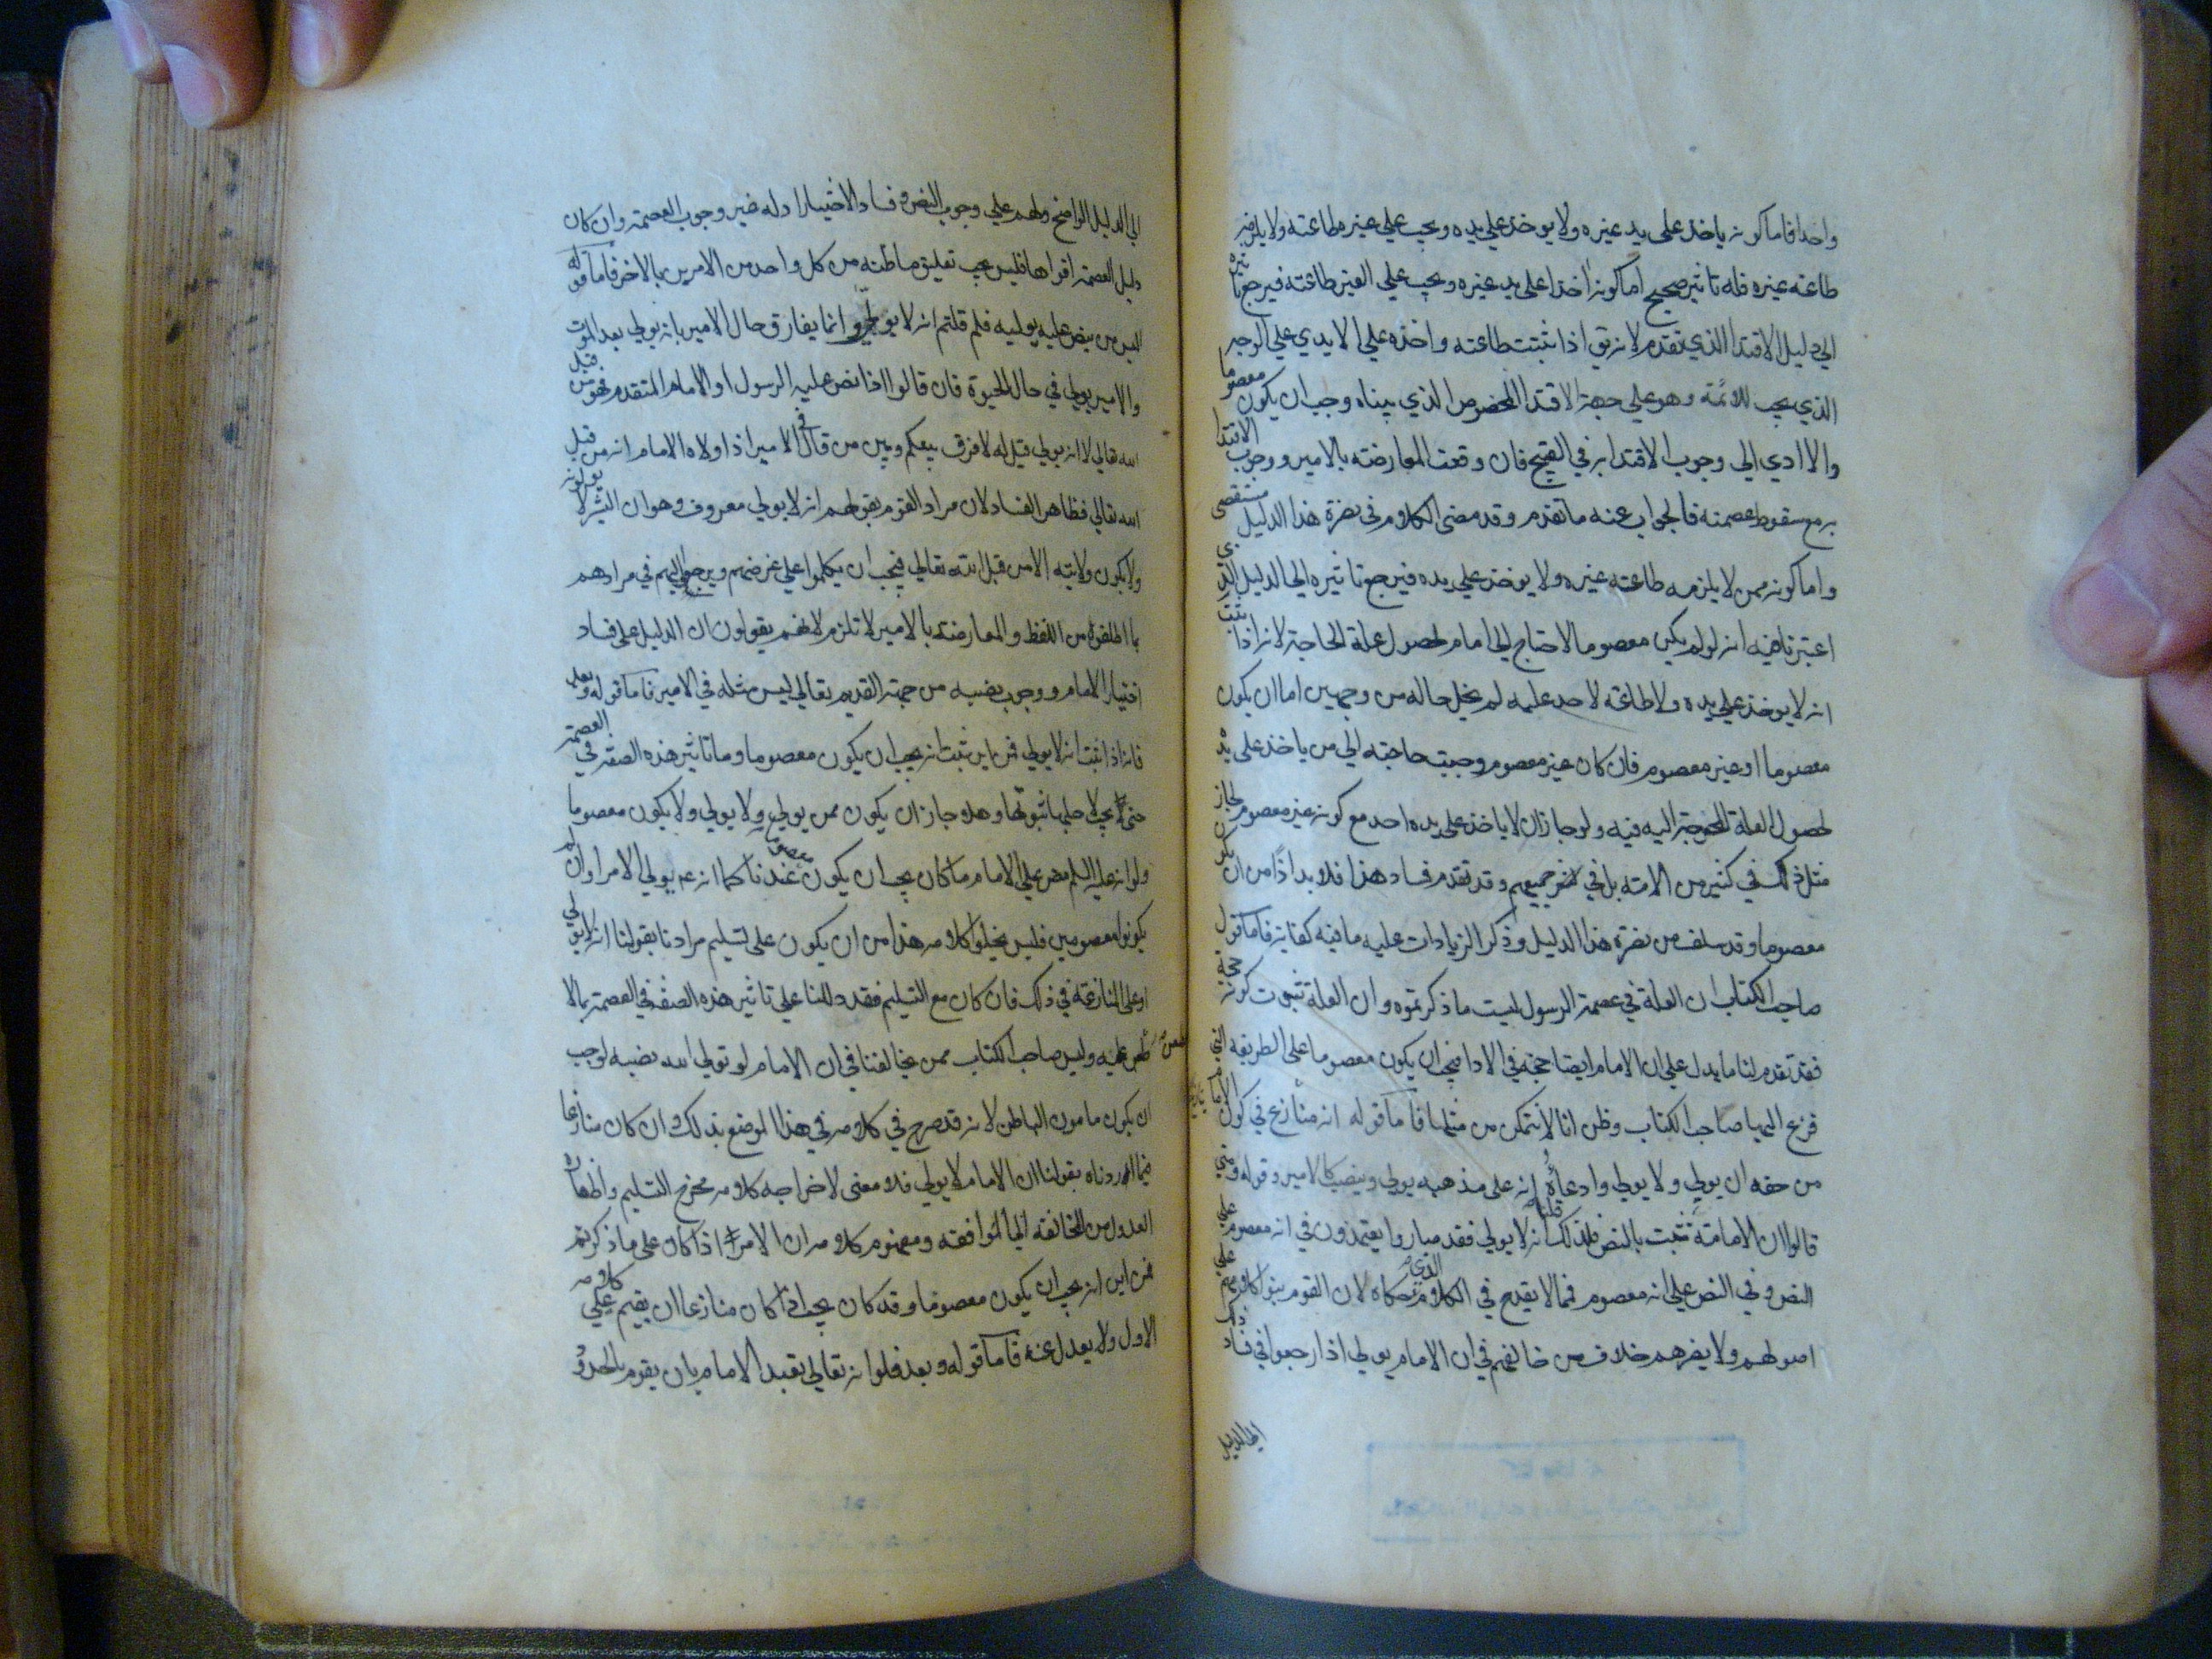 واحدا فاما كونه ياخذ على يد غيره ولا يوخذ علي يده ويجب علي غيره طاعته ولا يلزمه
طاعة غيره فله تاثير صحيح اما كونه اخذا على يد غيره ويجب علي الغير طاعته فيرجع تاثيره
الي دليل الاقتدا الذي تقدم لانه تق اذا ثبتت طاعته واخذه علي الايدي علي الوجه
الذي يجب للائمة وهو علي جهة الاقتدا المخصوص الذي بيناه وجب ان يكون معصوما
والا ادي الي وجوب الاقتدا به في القبيح فان وقعت المعارضة بالامير ووجوب الاقتدا
به مع سقوط عصمته فالجواب عنه ما تقدم وقد مضى الكلام في نصرة هذا الدليل مستقصى
واما كونه ممن لا يلزمه طاعة غيره ولا يوخذ علي يده فيرجع تاثيره الي الدليل الذي
اعتبرنا فيه انه لو لم يكن معصوما لاحتاج الي امام لحصول علة الحاجة لانه اذا ثبت
انه لا يوخذ علي يده ولا طاعة لاحد عليه لم يخل حاله من وجهين اما ان يكون
معصوما او غير معصوم فان كان غير معصوم وجبت حاجته الي من ياخذ على يده
لحصول العلة المحوجة اليه فيه ولو جاز ان لا ياخذ على يده احد مع كونه غير معصوم لجاز
مثل ذلك في كثير من الامة بل في جميعهم وقد تقدم فساد هذا فلا بد اذا من ان يكون
معصوما وقد سلف من نصرة هذا الدليل وذكر الزيادات عليه ما فيه كفاية فاما قول
صاحب الكتاب ان العلة في عصمة الرسول ليست ما ذكرتموه وان العلة ثبوت كونه حجة
فقد تقدم لنا ما يدل علي ان الامام ايضا حجة في الادا فيجب ان يكون معصوما على الطريقة التي
فزع اليها صاحب الكتاب وظن انا لا نتمكن من مثلها فاما قوله انه منازع في كون الامام
من حقه ان يولي ولا يولي وادعاؤه انه على مذهبه يولي وينصب كالامير وقوله ومتي
قالوا ان الامامة تثبت بالنص فلذلك قلنا انه لا يولي فقد صاروا يعتمدون في انه معصوم علي
النص وفي النص علي انه معصوم فمما لا يقدح في الكلام الذي حكاه لان القوم بنوا كلامهم علي
اصولهم ولا يضرهم خلاف من خالفهم في ان الامام يولي اذا رجعوا في فساد ذلك
الي الدليل
الي الدليل الواضح ولهم علي وجوب النص وفساد الاختيار ادلة غير وجوب العصمة وان كان
دليل العصمة اقواها فليس يجب تعليق ما ظنه من كل واحد من الامرين بالاخر فاما قوله
اليس من ينص عليه يوليه فلم قلتم انه لا يولي وانما يفارق حال الامير بانه يولي بعد الموت
والامير يولي في حال الحيوة فان قالوا اذا نص عليه الرسول او الامام المتقدم فهو من قبل
الله تعالي لا انه يولي قيل له لا فرق بينكم وبين من قال في الامير اذا ولاه الامام انه من قبل
الله تعالي فظاهر الفساد لان مراد القوم بقولهم انه لا يولي معروف وهو ان البشر لا يولونه
ولا يكون ولايته الا من قبل الله تعالي فيجب ان يكلموا علي غرضهم ويرجع اليهم في مرادهم
بما اطلقوه من اللفظ والمعارضة بالامير لا تلزم لانهم يقولون ان الدليل على فساد
اختيار الامام ووجوب نصبه من جهة القديم تعالي ليس مثله في الامير فاما قوله وبعد
فانه اذا ثبت انه لا يولي فمن اين ثبت انه يجب ان يكون معصوما وما تاثير هذه الصفة في العصمة
حتي يجب لاجلها ثبوتها وهلا جاز ان يكون ممن يولي ولا يولي ولا يكون معصوما
ولو انه عليه السلم نص علي الامام ما كان يجب ان يكون معصوما عندنا كما انه عم يولي الامرا وان لم
يكونوا معصومين فليس يخلوا كلامه هذا من ان يكون على تسليم مرادنا بقولنا انه لا يولي
او على المنازعة في ذلك فان كان مع التسليم فقد دللنا علي تاثير هذه الصفة في العصمة بما لا
طعن عليه وليس صاحب الكتاب ممن يخالفنا في ان الامام لو تولي الله نصبه لوجب
ان يكون مامون الباطن لانه قد صرح في كلامه في هذا الموضع بذلك وان كان منازعا
فيما اوردناه بقولنا ان الامام لا يولي فلا معنى لاخراجه كلامه مخرج التسليم واظهاره
العدول من المخالفة الي الموافقة ومفهوم كلامه ان الامر اذا كان على ما ذكرتم
فمن اين انه يجب ان يكون معصوما وقد كان يجب اذا كان منازعا ان يقيم علي كلامه
الاول ولا يعدل عنه فاما قوله وبعد فلو انه تعالي تعبد الامام بان يقوم بالحدود